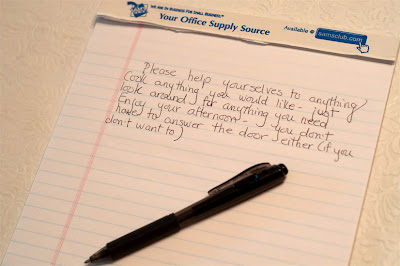 THE ADS IN BUSINESS FOR SMALL BUSINESS™
Your Office Supply Source
Available @ samsclub.com
Please help yourselves to anything/
Cook anything you would like - just
look around for anything you need
Enjoy your afternoon - you don't
have to answer the door either (if you
don't want to)